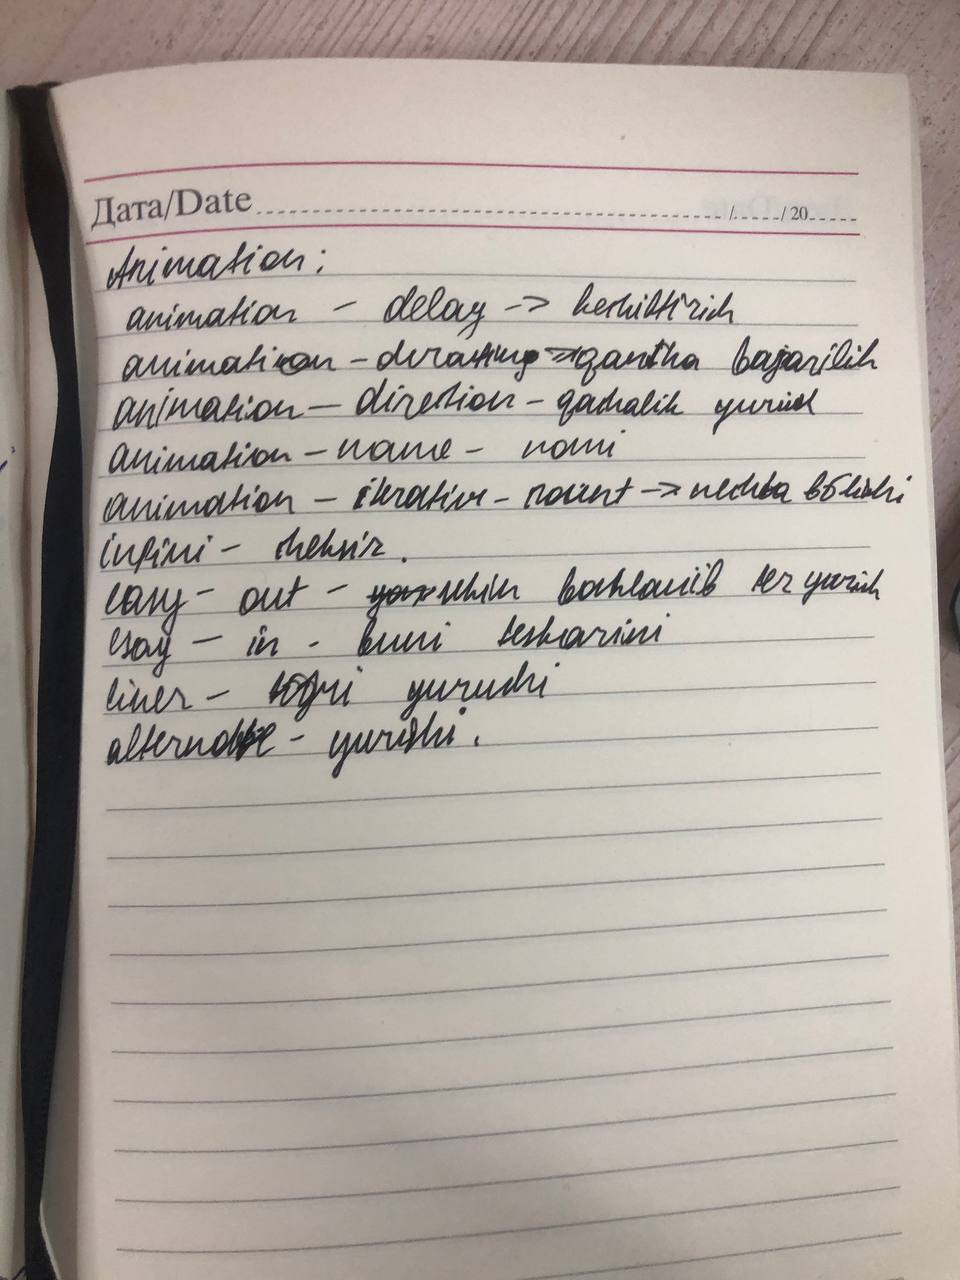 Дата/Date / / 20
Animation:
animation - delay -> keshiktirish
animation - duration -> qancha bajarilish
animation - diretion - qachalik yurish
animation - name - nomi
animation - iterative - count -> nechta bõlishi
infini - cheksiz.
easy - out - sekin boshlanib tez yurish
esay - in - buni teskarisi
liner - tõgri yurushi
alternate - yurishi.